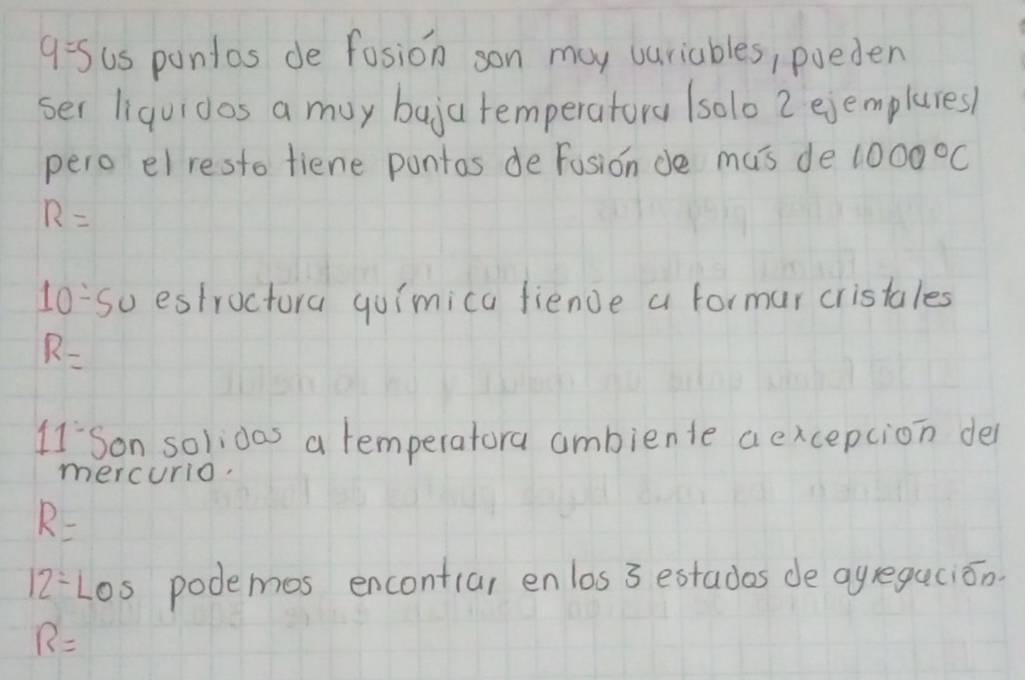 9-Sus puntos de fusión son muy variables, pueden
ser liquidos a muy baja temperatura (solo 2 ejemplares)
pero el resto tiene puntos de Fusión de más de 1000°C
R=
10-Su estructura química tiende a formar cristales
R=
11-Son solidos a temperatura ambiente a excepción del
mercurio.
R=
12-Los podemos encontrar en los 3 estados de agregación.
R=